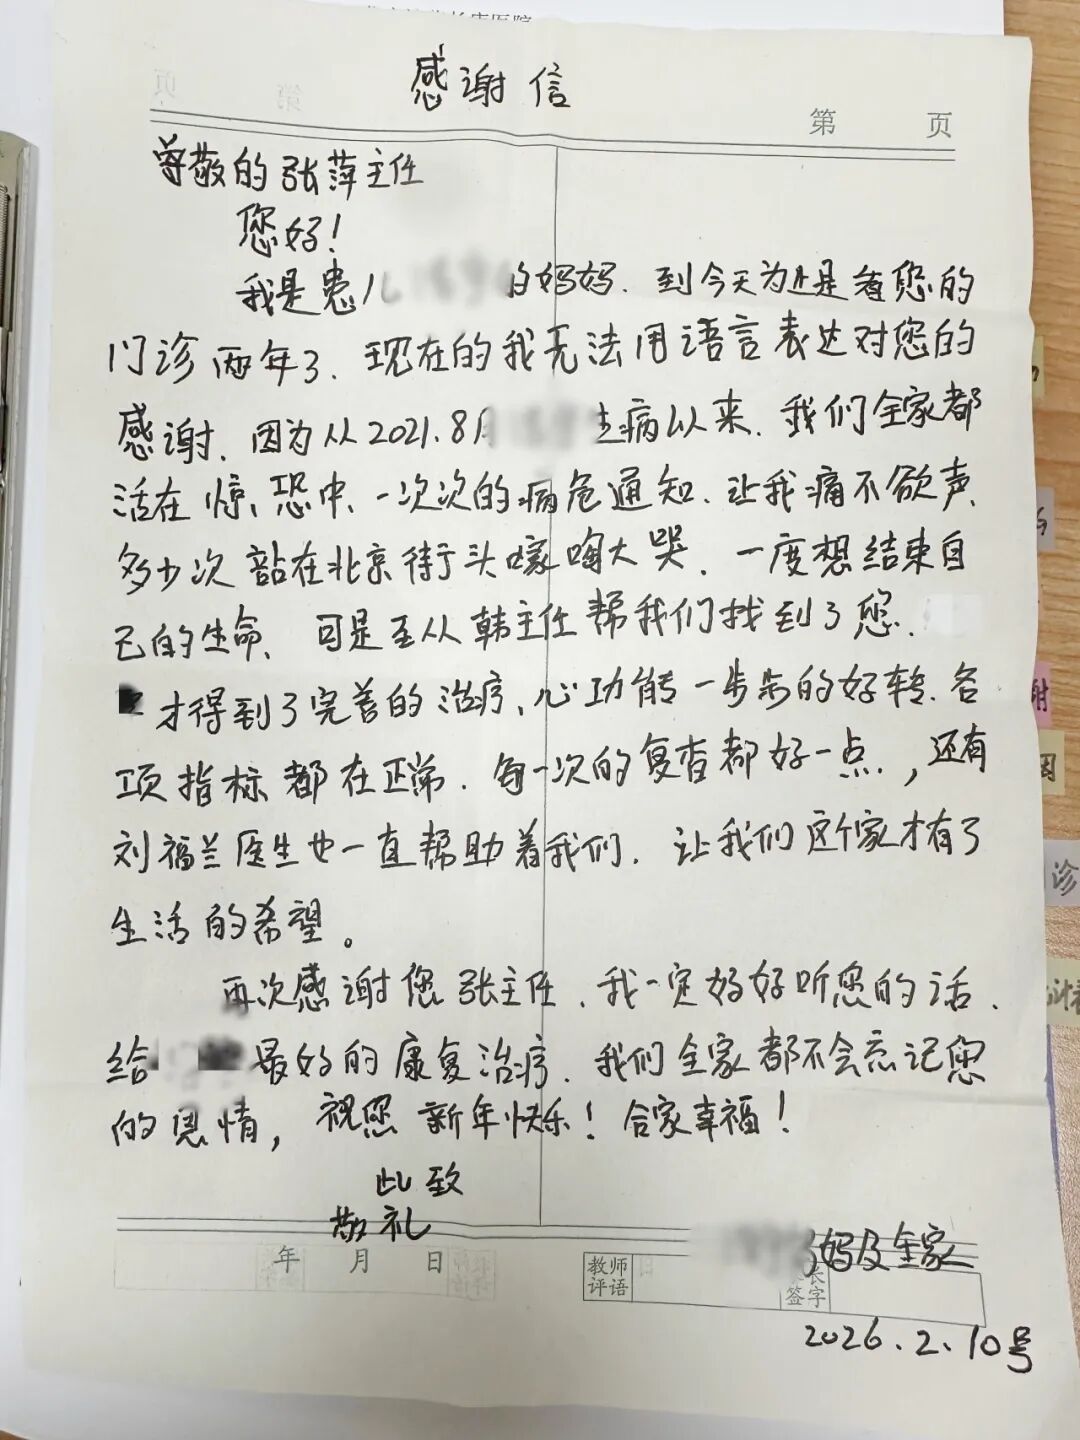 感谢信
第 页
尊敬的张萍主任
您好!
我是患儿 的妈妈.到今天为止是看您的
门诊两年了.现在的我无法用语言表达对您的
感谢.因为从2021.8月 生病以来.我们全家都
活在惊恐中、一次次的病危通知.让我痛不欲声.
多少次站在北京街头嚎啕大哭.一度想结束自
己的生命、可是至从韩主任帮我们找到了您.
才得到了完善的治疗、心功能一步步的好转.各
项指标都在正常.每一次的复查都好一点.,还有
刘福兰医生也一直帮助着我们.让我们这个家才有了
生活的希望。
再次感谢您张主任.我一定好好听您的话.
给 最好的康复治疗.我们全家都不会忘记您
的恩情,祝您新年快乐!合家幸福!
此致
敬礼
妈妈及全家
年 月 日
教师评语
家长签字
2026.2.10号